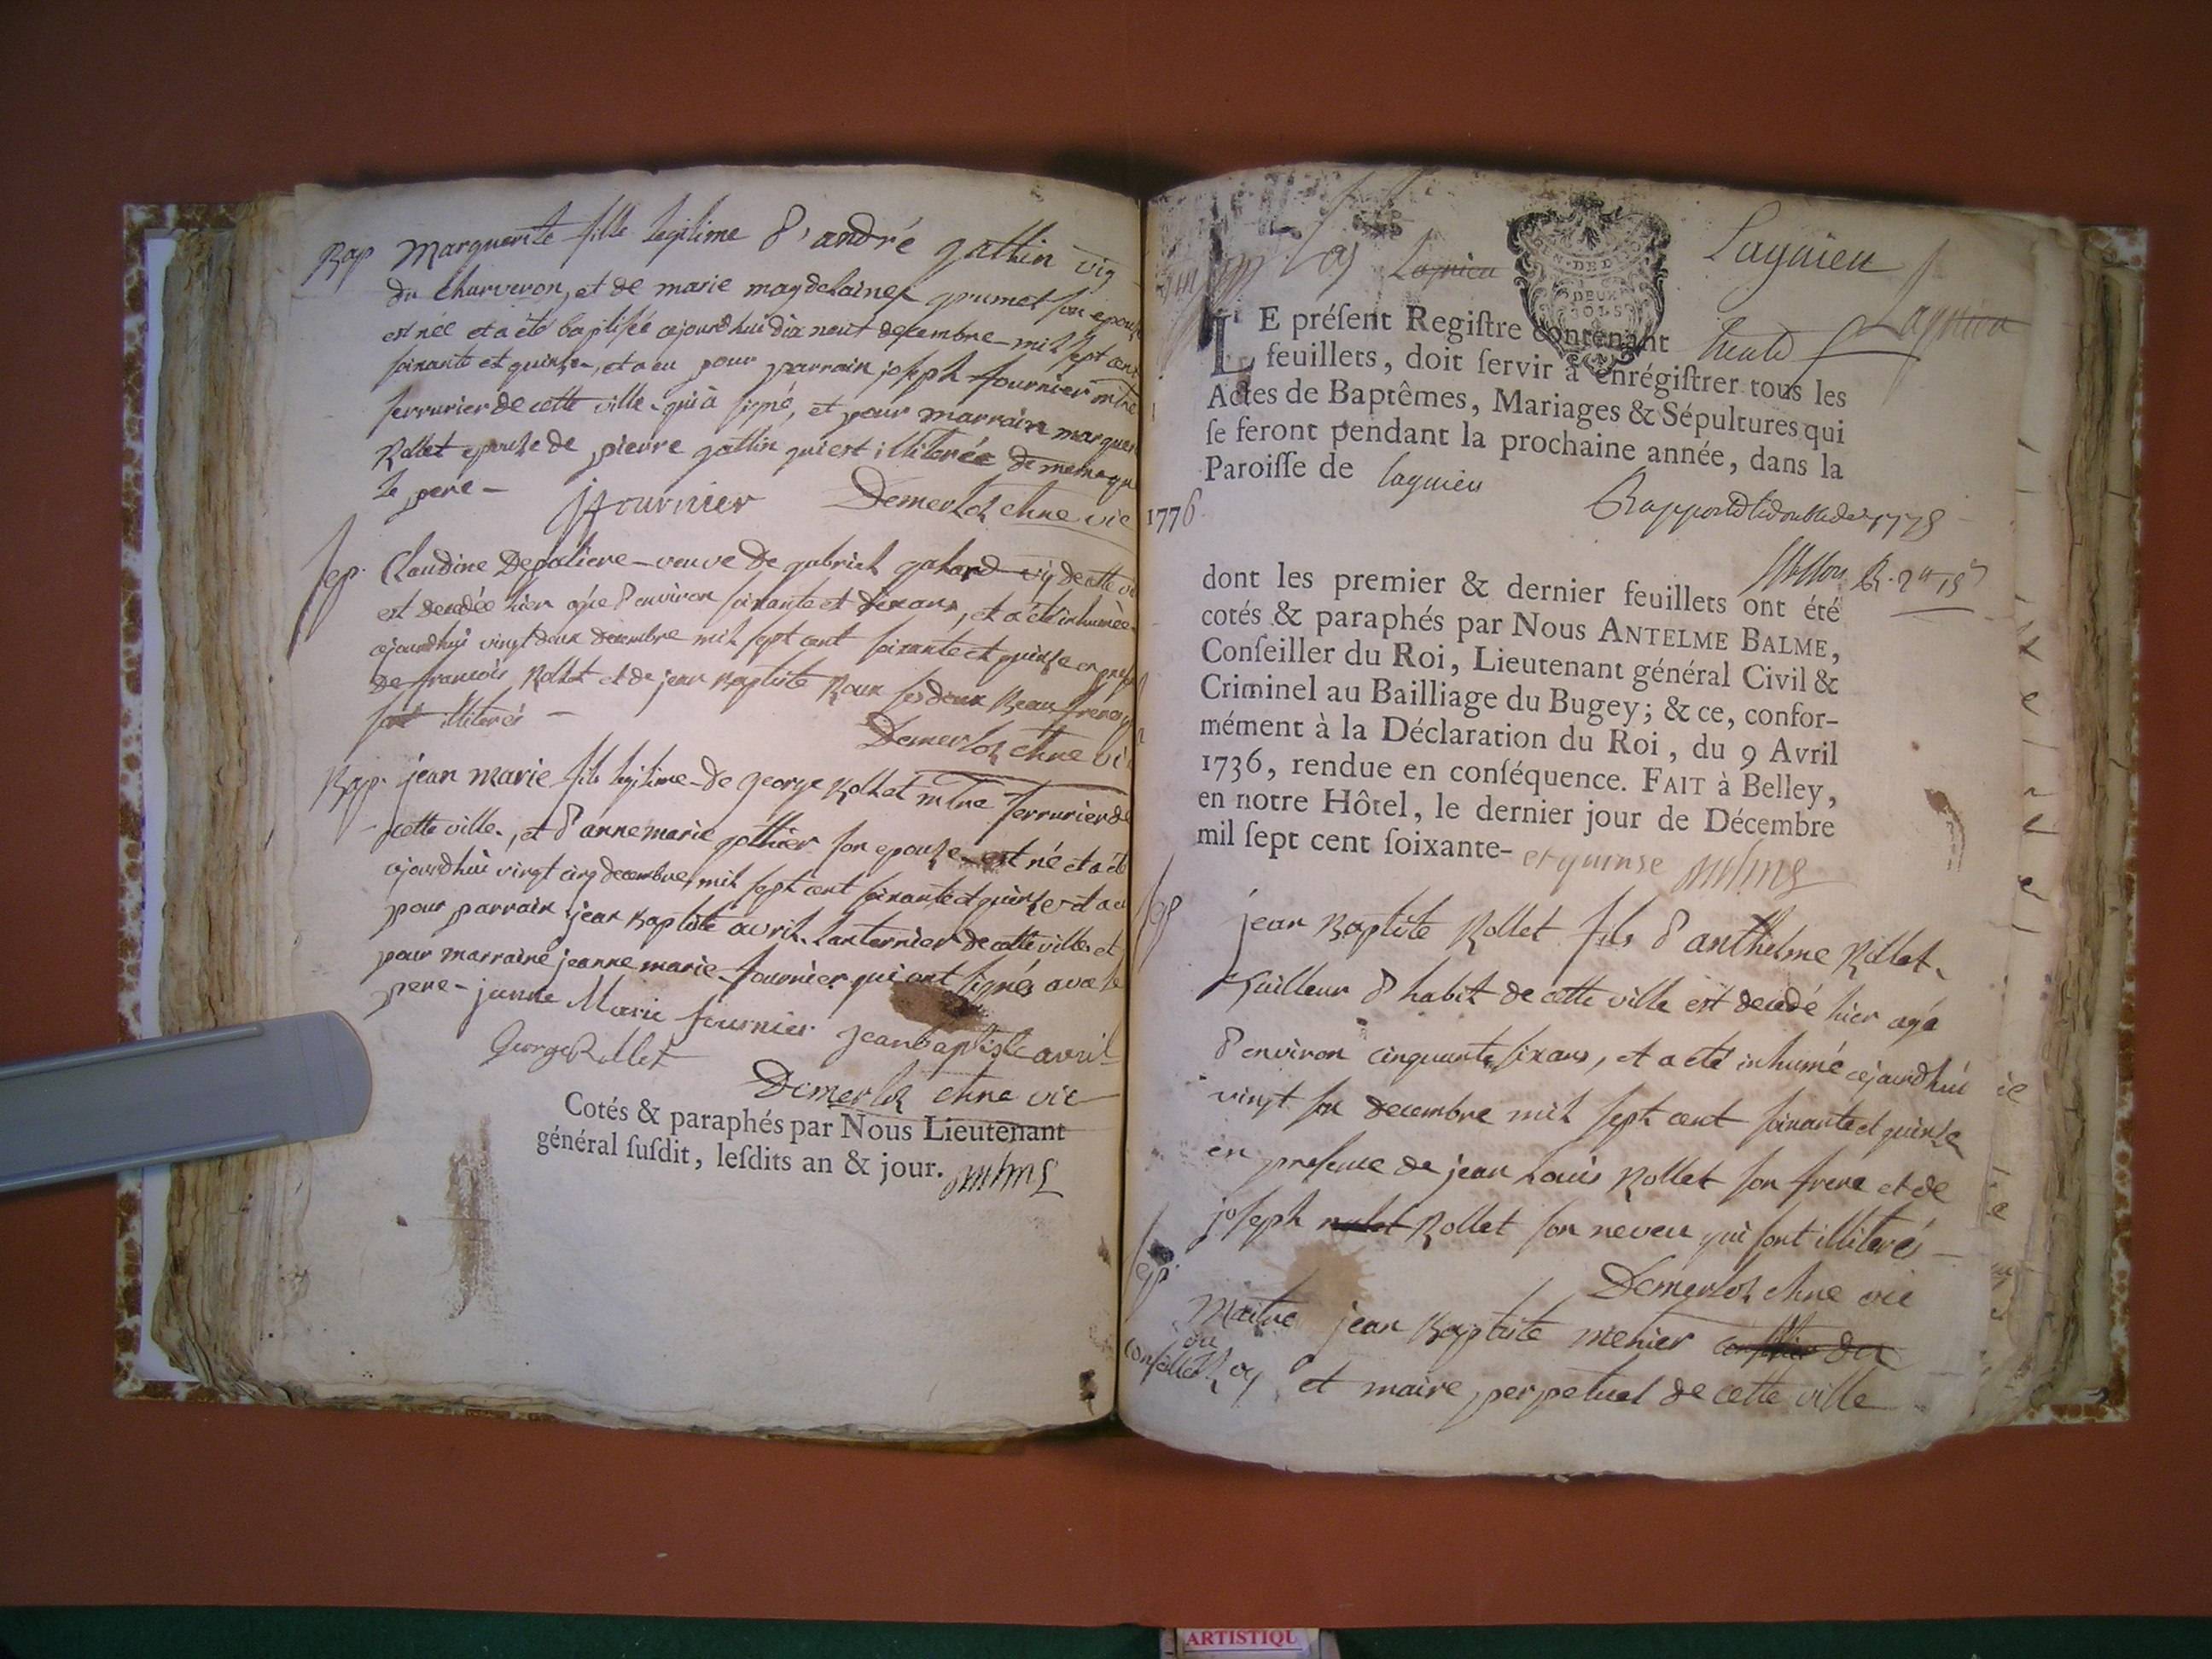 Bap Marguerite fille legitime d'andré gathin vig
du Charveron, et de marie magdelaine grumet son epouse
est née et a été baptisée cejourdhui dix neuf decembre mil sept cent
soixante et quinse, et a eu pour parrain joseph fournier mtre
serrurier de cette ville qui à signé, et pour marraine marguer
Rollet epouse de pierre gathin qui est illiterée de meme que
le pere -
jfournier Demerloz chne vic
sep. Claudine Depaliere veuve de gabriel gahard vig de cette vi
est decedée hier agée d'environ soixante et dix ans, et a été inhumée
cejourdhui vingt deux decembre mil sept cent soixante et quinse en pres
de francois Rollet et de jean Baptiste Roux ses deux Beau freres q
sont illiterés -
Demerloz chne vic
Bap. jean marie fils legitime de george Rollet mtre serrurier de
cette ville, et d'anne marie gothier son epouse est né et a été
cejourdhui vingt cinq decembre mil sept cent soixante et quinse et a eu
pour parrain jean Baptiste avril lanternier de cette ville et
pour marraine jeanne marie fournier qui ont signés avec le
pere - jeanne Marie fournier jean baptiste avril
George Rollet
Demerloz chne vic
Cotés & paraphés par Nous Lieutenant
général ſuſdit, leſdits an & jour.
Lagnieu Lagnieu
DEUX
SOLS
Lagnieu
LE préſent Regiſtre contenant trente
feuillets, doit ſervir à enrégiſtrer tous les
Actes de Baptêmes, Mariages & Sépultures qui
ſe feront pendant la prochaine année, dans la
Paroiſſe de lagnieu
1776
dont les premier & dernier feuillets ont été
cotés & paraphés par Nous ANTELME BALME,
Conſeiller du Roi, Lieutenant général Civil &
Criminel au Bailliage du Bugey; & ce, confor-
mément à la Déclaration du Roi, du 9 Avril
1736, rendue en conſéquence. FAIT à Belley,
en notre Hôtel, le dernier jour de Décembre
mil ſept cent ſoixante- et quinse
sep jean Baptiste Rollet fils d'anthelme Rollet
Tailleur d'habit de cette ville est decedé hier agé
d'environ cinquante six ans, et a été inhumé cejourdhui
vingt decembre mil sept cent soixante et quinse
en presence de jean Louis Rollet son frere et de
joseph Rollet son neveu qui sont illiterés -
Demerloz chne vic
sep. Maitre jean Baptiste menier conseiller du
conseiller du Roy et maire perpetuel de cette ville
ARTISTIQU